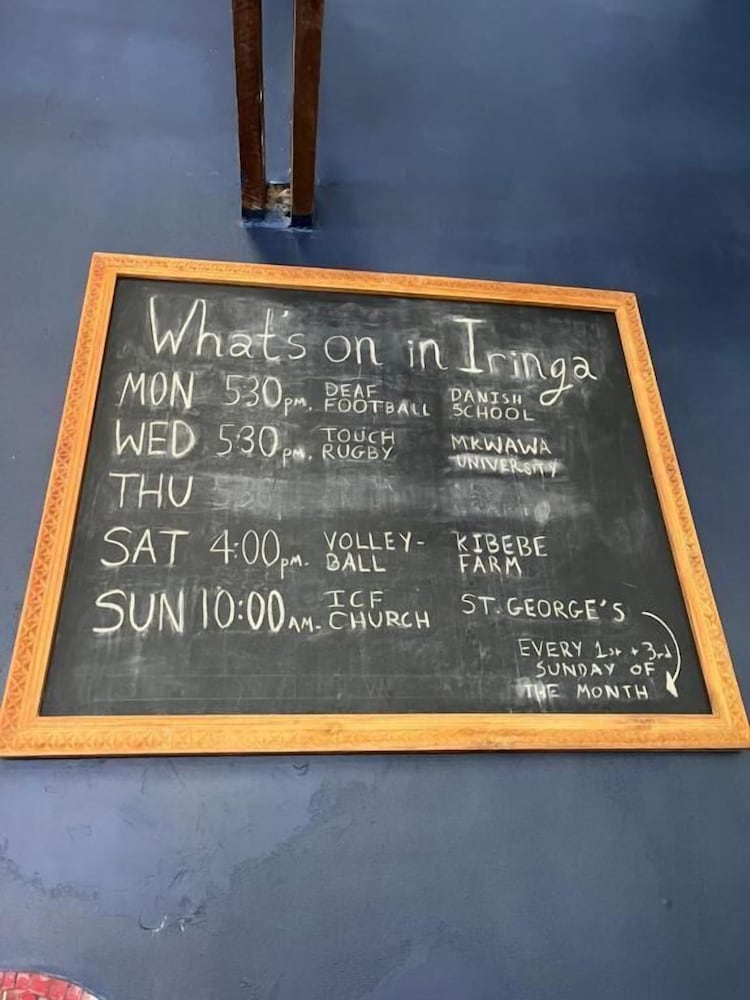 What's on in Iringa
MON 530pm. DEAF FOOTBALL DANISH SCHOOL
WED 530pm. TOUCH RUGBY MKWAWA UNIVERSITY
THU
SAT 4:00pm. VOLLEY-BALL KIBEBE FARM
SUN 10:00AM. ICF CHURCH ST. GEORGE'S
EVERY 1st + 3rd
SUNDAY OF
THE MONTH